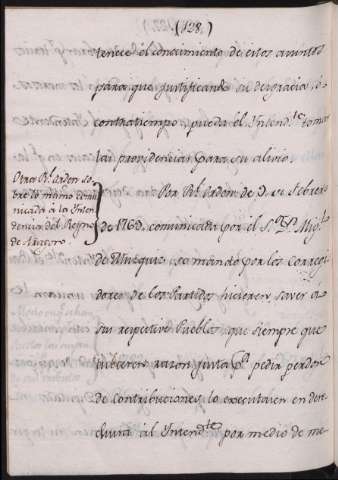 (128.)
tenece el conocimiento de estos asuntos
para que justificando su desgracia, ó
contratiempo pueda el Intend.te tomar
las providencias para su alivio.
Otra R.l orden so-
bre lo mismo comu-
nicada à la Inten-
dencia del Reyno
de Navarro.
Por R.l orden de 9 de Febrero
de 1760, comunicada por el S.or D.n Mig.l
de Muzquiz, se mandó por los Corregi-
dores de los Partidos hiciesen saver á
sus respective Pueblos, que siempre que
tubiesen razon justa p.a pedir perdon
de contribuciones, lo executasen en dere-
chura al Intend.te por medio de me-